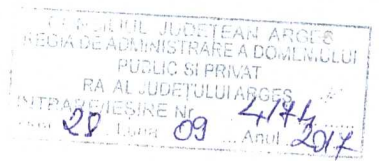 CONSILIUL JUDEȚEAN ARGEȘ
REGIA DE ADMINISTRARE A DOMENIULUI
PUBLIC SI PRIVAT
RA AL JUDEȚULUI ARGEȘ
INTRARE/IESIRE Nr. 4174
Ziua 28 Luna 09 Anul 2017